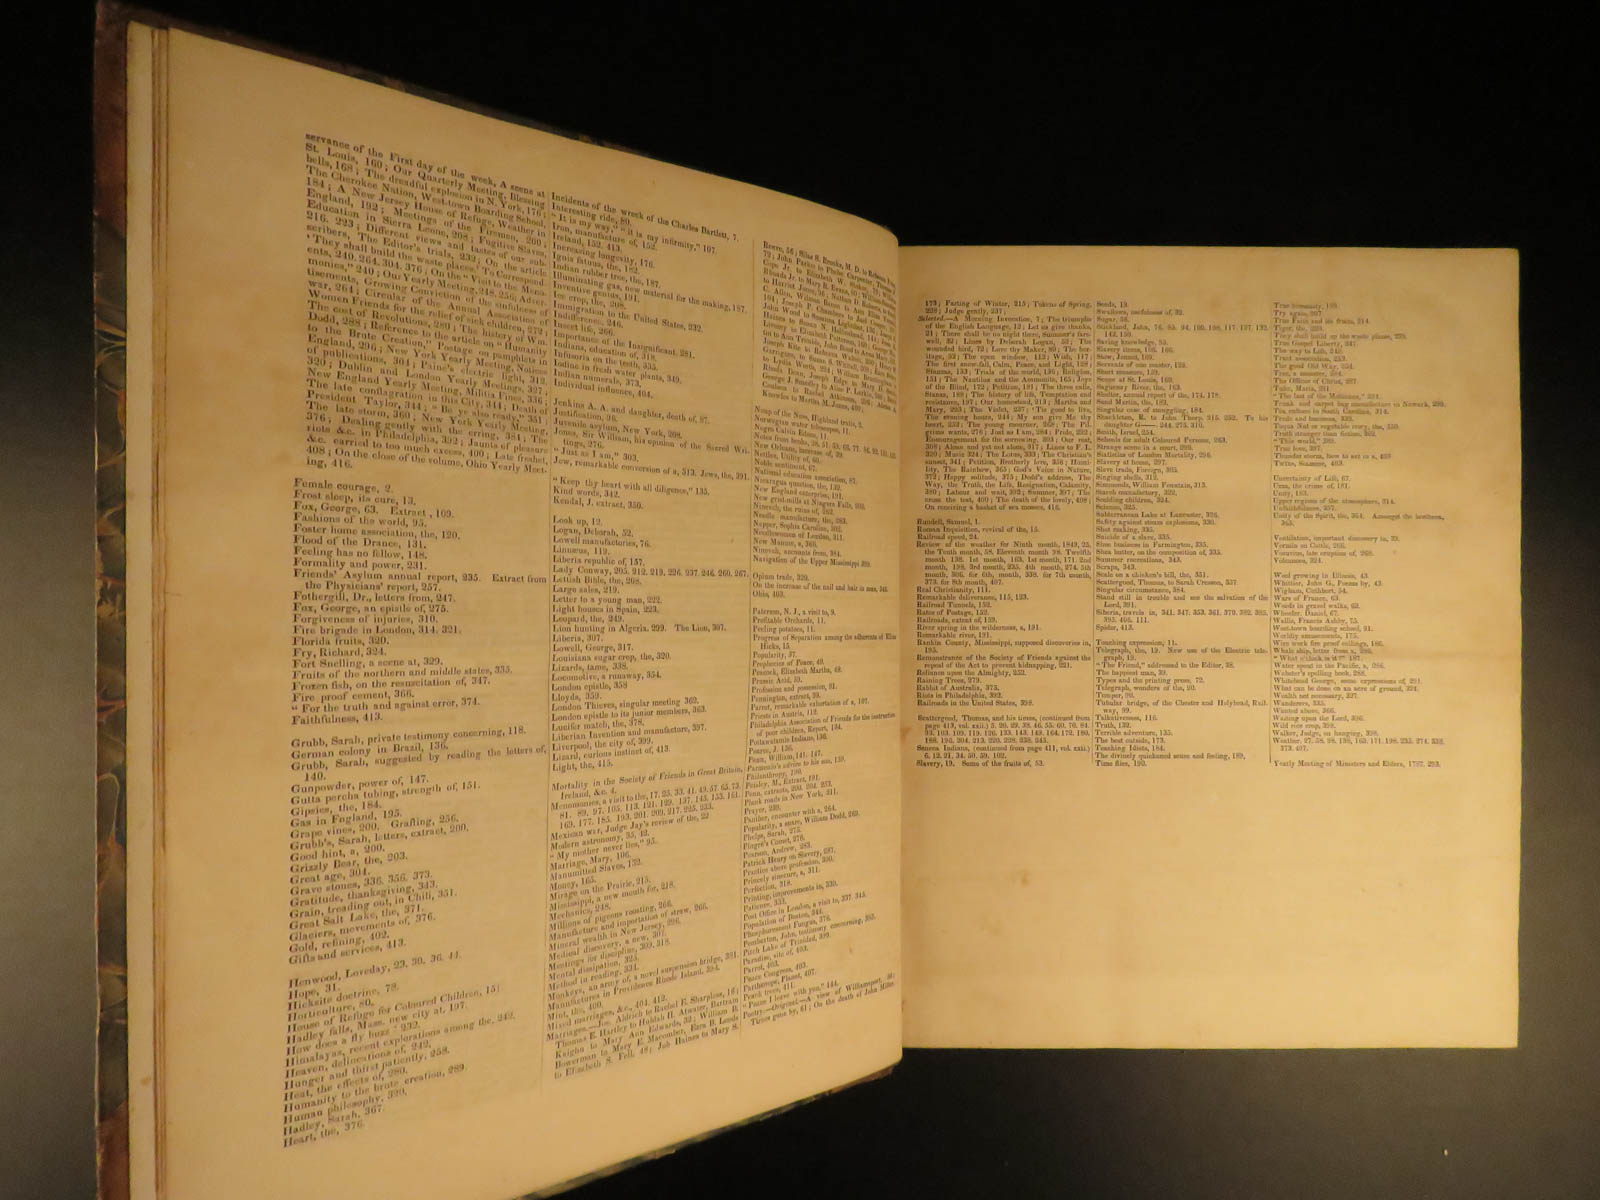 servance of the First day of the week, A scene at
St. Louis, 160; Our Quarterly Meeting, Blessing
bells, 168; The dreadful explosion in N. York, 176;
The Cherokee Nation, West-town Boarding School,
184; A New Jersey House of Refuge, Weather in
England, 192; Meetings of the Firemen, 200;
Education in Sierra Leone, 208; Fugitive Slaves,
216. 223; Different views and tastes of our sub-
scribers, The Editor's trials, 232; On the article
'They shall build the waste places,' To Correspond-
ents, 240. 264. 304. 376; On the "Visit to the Meno-
monies," 240; Our Yearly Meeting, 248. 256; Adver-
tisements, Growing Conviction of the sinfulness of
war, 264; Circular of the Annual Association of
Women Friends for the relief of sick children, 272;
The cost of Revolutions, 280; The history of Wm.
Dodd, 288; Reference to the article on "Humanity
to the Brute Creation," Postage on pamphlets in
England, 296; New York Yearly Meeting, Notices
of publications, 304; Paine's electric light, 312.
320; Dublin and London Yearly Meetings, 327;
New England Yearly Meeting, Militia Fines, 336;
The late conflagration in this City, 344; Death of
President Taylor, 344; "Be ye also ready," 351;
The late storm, 360; New York Yearly Meeting,
376; Dealing gently with the erring, 384; The
riots &c. in Philadelphia, 392; Jaunts of pleasure
&c. carried to too much excess, 400; Late freshet,
408; On the close of the volume, Ohio Yearly Meet-
ing, 416.
Female courage, 2.
Frost sleep, its cure, 13.
Fox, George, 63. Extract, 109.
Fashions of the world, 95.
Foster home association, the, 120.
Flood of the Drance, 131.
Feeling has no fellow, 148.
Formality and power, 231.
Friends' Asylum annual report, 235. Extract from
the Physicians' report, 257.
Fothergill, Dr., letters from, 247.
Fox, George, an epistle of, 275.
Forgiveness of injuries, 310.
Fire brigade in London, 314. 321.
Florida fruits, 320.
Fry, Richard, 324.
Fort Snelling, a scene at, 329.
Fruits of the northern and middle states, 333.
Frozen fish, on the resuscitation of, 347.
Fire proof cement, 366.
"For the truth and against error, 374.
Faithfulness, 413.
Grubb, Sarah, private testimony concerning, 118.
German colony in Brazil, 136.
Grubb, Sarah, suggested by reading the letters of,
140.
Gunpowder, power of, 147.
Gutta percha tubing, strength of, 151.
Gipsies, the, 184.
Gas in England, 195.
Grape vines, 200. Grafting, 256.
Grubb's, Sarah, letters, extract, 200.
Good hint, a, 200.
Grizzly Bear, the, 203.
Great age, 304.
Grave stones, 336. 356. 373.
Gratitude, thanksgiving, 343.
Grain, treading out, in Chili, 351.
Great Salt Lake, the, 371.
Glaciers, movements of, 376.
Gold, refining, 402.
Gifts and services, 413.
Henwood, Loveday, 23. 30. 36. 44.
Hope, 31.
Hicksite doctrine, 79.
Horticulture, 80.
House of Refuge for Coloured Children, 151
Hadley falls, Mass. new city at, 197.
How does a fly buzz? 232.
Himalayas, recent explorations among the, 242.
Heaven, delineations of, 249.
Hunger and thirst patiently, 258.
Heat, the effects of, 280.
Humanity to the brute creation, 289.
Human philosophy, 320.
Hadley, Sarah, 367.
Heart, the, 376.
Incidents of the wreck of the Charles Bartlett, 7.
Interesting ride, 80.
"It is my way," "it is my infirmity," 107.
Iron, manufacture of, 152.
Ireland, 152. 413.
Increasing longevity, 176.
Ignis fatuus, the, 182.
Indian rubber tree, the, 187.
Illuminating gas, new material for the making, 197.
Inventive genius, 191.
Ice crop, the, 208.
Immigration to the United States, 232.
Indifference, 246.
Insect life, 266.
Importance of the Insignificant, 281.
Indiana, education of, 318.
Infusoria on the teeth, 335.
Iodine in fresh water plants, 349.
Indian numerals, 373.
Individual influence, 404.
Jenkins A. A. and daughter, death of, 87.
Justification, 98.
Juvenile asylum, New York, 208.
Jones, Sir William, his opinion of the Sacred Wri-
tings, 276.
"Just as I am," 303.
Jew, remarkable conversion of a, 313. Jews, the, 391.
"Keep thy heart with all diligence," 135.
Kind words, 342.
Kendal, J. extract, 350.
Look up, 12.
Logan, Deborah, 52.
Lowell manufactories, 76.
Linnæus, 119.
Liberia republic of, 157.
Lady Conway, 205. 212. 219. 226. 237. 246. 260. 267.
Lettish Bible, the, 208.
Large sales, 219.
Letter to a young man, 222.
Light houses in Spain, 223.
Leopard, the, 249.
Lion hunting in Algeria. 299. The Lion, 307.
Liberia, 307.
Lowell, George, 317.
Louisiana sugar crop, the, 320.
Lizards, tame, 338.
Locomotive, a runaway, 354.
London epistle, 358
Lloyds, 359.
London Thieves, singular meeting 369.
London epistle to its junior members, 363.
Lucifer match, the, 378.
Liberian Invention and manufacture, 397.
Liverpool, the city of, 399.
Lizard, curious instinct of, 413.
Light, the, 415.
Mortality in the Society of Friends in Great Britain,
Ireland, &c. 4.
Menomonies, a visit to the, 17. 25. 33. 41. 49. 57. 65. 73.
81. 89. 97. 105. 113. 121. 129. 137. 145. 153. 161.
169. 177. 185. 193. 201. 209. 217. 225. 233.
Mexican war, Judge Jay's review of the, 22
Modern astronomy, 35, 42.
"My mother never lies," 95.
Marriage, Mary, 106.
Manumitted Slaves, 132.
Money, 165.
Mirage on the Prairie, 215.
Mississippi, a new mouth for, 218.
Mechanics, 248.
Millions of pigeons roosting, 266.
Manufacture and importation of straw, 266.
Mineral wealth in New Jersey, 296.
Medical discovery, a new, 307.
Meetings for discipline, 309. 318.
Mental dissipation, 325.
Method in reading, 334.
Monkeys, an army of, a novel suspension bridge, 381.
Manufactures in Providence Rhode Island, 394.
Mint, the, 400.
Mixed marriages, &c., 404. 412.
Marriages.—Jno. Aldrich to Rachel E. Sharpless, 16;
Thomas E. Hartley to Huldah H. Atwater, Bertram
Kaighn to Mary Ann Edwards, 32; William B.
Bowerman to Mary E. Macomber, Ezra B. Leeds
to Elizabeth S. Fell, 48; Job Haines to Mary S.
Noup of the Noss, Highland traits, 3.
Norwegian water telescopes, 11.
Negro Calvin Edson, 11.
New Orleans, increase of, 39.
Nettles, Utility of, 60.
Noble sentiment, 67.
National education association, 81.
Nicaragua question, the, 132.
New England enterprise, 191.
New grist-mills at Niagara Falls, 200.
Nineveh, the ruins of, 262.
Needle manufacture, the, 283.
Napper, Sophia Caroline, 302.
Needlewomen of London, 311.
New Manure, a, 366.
Nineveh, accounts from, 384.
Navigation of the Upper Mississippi 399.
Opium trade, 320.
On the increase of the nail and hair in man, 345.
Ohio, 403.
Paterson, N. J., a visit to, 9.
Profitable Orchards, 11.
Peeling potatoes, 11.
Progress of Separation among the adherents of Elias
Hicks, 15.
Popularity, 37.
Prophecies of Peace, 40.
Peacock, Elizabeth Martha, 48.
Prussic Acid, 59.
Profession and possession, 81.
Pennington, extract, 89.
Parrot, remarkable exhortation of a, 107.
Priests in Austria, 112.
Philadelphia Association of Friends for the instruction
of poor children, Report, 134.
Pottawatamie Indians, 136.
Pearce, J. 136.
Penn, William, 141. 147.
Philanthropy, 190.
Paisley, M., Extract, 191.
Penn, extracts, 200. 204. 253.
Plank roads in New York, 211.
Prayer, 239.
Panther, encounter with a, 264.
Popularity, a snare, William Dodd, 269.
Phelps, Sarah, 275.
Pearson, Andrew, 283.
Patrick Henry on Slavery, 287.
Practice above profession, 300.
Princely sinecure, a, 311.
Perfection, 318.
Printing, improvements in, 330.
Patience, 333.
Post Office in London, a visit to, 337. 345.
Population of Boston, 344.
Phosphorescent Fungus, 376.
Pemberton, John, testimony concerning, 395.
Pitch Lake of Trinidad, 399.
Paradise, site of, 403.
Parrot, 403.
Peace Congress, 403.
Parthenope, Planet, 407.
Peach trees, 411.
"Peace I leave with you," 414.
Poetry—Original—A view of Williamsport, 46;
Times gone by, 61; On the death of John Miller,
173; Parting of Winter, 215; Tokens of Spring,
228; Judge gently, 237;
Selected.—A Morning Invocation, 7; The triumphs
of the English Language, 12; Let us give thanks,
21; There shall be no night there, Summer's fare-
well, 32; Lines by Deborah Logan, 52; The
wounded bird, 72; Love thy Maker, 80; The her-
itage, 93; The open window, 112; Wish, 117;
The first snow-fall, Calm, Peace, and Light, 128;
Stanzas, 133; Trials of the world, 136; Religion,
151; The Nautilus and the Ammonite, 163; Joys
of the Blind, 172; Petition, 181; The three calls,
Stanza, 189; The history of life, Temptation and
resistance, 197; Our homestead, 213; Martha and
Mary, 223; The Violet, 237; 'Tis good to live,
The evening hours, 244; My son give Me thy
heart, 253; The young mourner, 268; The Pil-
grims wants, 276; Just as I am, 284; Pride, 292;
Encouragement for the sorrowing, 303; Our rest,
308; Alone and yet not alone, 317; Lines to F. L.
320; Music 324; The Lotus, 333; The Christian's
sunset, 341; Petition, Brotherly love, 356; Humi-
lity, The Rainbow, 365; God's Voice in Nature,
372; Happy solitude, 375; Dodd's address, The
Way, the Truth, the Life, Resignation, Calamity,
380; Labour and wait, 392; Summer, 397; The
cross the test, 400; The death of the lovely, 408;
On receiving a basket of sea mosses, 416.
Rundell, Samuel, 1.
Roman Inquisition, revival of the, 15.
Railroad speed, 24.
Review of the weather for Ninth month, 1849, 23,
the Tenth month, 58. Eleventh month 98. Twelfth
month 138. 1st month, 163. 1st month, 171. 2nd
month, 198. 3rd month, 235. 4th month, 274. 5th
month, 306. for 6th, month, 338. for 7th month,
373. for 8th month, 407.
Real Christianity, 111.
Remarkable deliverance, 115, 123.
Railroad Tunnels, 152.
Rates of Postage, 152.
Railroads, extent of, 159.
River spring in the wilderness, a, 191.
Remarkable river, 191.
Rankin County, Mississippi, supposed discoveries in,
195.
Remonstrance of the Society of Friends against the
repeal of the Act to prevent kidnapping, 231.
Reliance upon the Almighty, 252.
Raining Trees, 279.
Rabbit of Australia, 375.
Riots in Philadelphia, 392.
Railroads in the United States, 398.
Scattergood, Thomas, and his times, (continued from
page 413, vol. xxii.) 5. 20. 29. 38. 46. 55. 60. 70. 84.
93. 103. 109. 119. 126. 133. 143. 149. 164. 172. 180.
188. 196. 204. 213. 220. 228. 238. 245.
Seneca Indians, (continued from page 411, vol. xxii.)
6. 13. 21. 34. 50. 59. 102.
Slavery, 19. Some of the fruits of, 53.
Seeds, 19.
Swallows, usefulness of, 32.
Sugar, 56.
Saving knowledge, 95.
Slavery items, 106. 166.
Stow, Jonas, 109.
Servants of one master, 125.
Short measure, 159.
Scene at St. Louis, 160.
Saguenay River, the, 163.
Shelter, annual report of the, 174. 178.
Sand Martin, the, 182.
Singular case of smuggling, 184.
Smith, Israel, 254.
Schools for adult Coloured Persons, 263.
Strange scene in a court, 289.
Statistics of London Mortality, 296.
Slavery at home, 297.
Slave trade, Foreign, 305.
Singing shells, 312.
Simmonds, William Forstain, 313.
Starch manufactory, 322.
Scolding children, 324.
Science, 325.
Subterranean Lake at Lancaster, 326.
Safety against steam explosions, 330.
Shot making, 335.
Suicide of a slave, 335.
Shoe business in Farmington, 335.
Shea butter, on the composition of, 335.
Summer recreations, 343.
Scraps, 343.
Scale on a chicken's bill, the, 351.
Scattergood, Thomas, to Sarah Cresson, 357.
Singular circumstance, 384.
Stand still in trouble and see the salvation of the
Lord, 391.
Siberia, travels in, 341. 347. 353. 361. 370. 382. 385.
395. 406. 411.
Spider, 413.
Touching expression, 11.
Telegraph, the, 12. New use of the Electric tele-
graph, 19.
"The Friend," addressed to the Editor, 38.
The happiest man, 39.
Types and the printing press, 72.
Telegraph, wonders of the, 90.
Temper, 90.
Tubular bridge, of the Chester and Holyhead, Rail-
way, 99.
Talkativeness, 116.
Truth, 132.
Terrible adventure, 135.
The best outside, 173.
Teaching Idiots, 184.
The divinely quickened sense and feeling, 189.
Time flies, 190.
True humanity, 199.
Try again, 207.
True Faith and its fruits, 214.
Tiger, the, 223.
They shall build up the waste places, 239.
True Gospel Liberty, 247.
The way to Life, 248.
Tract association, 252.
The good Old Way, 254.
Tree, a monster, 284.
The Officer of Christ, 287
Tuke, Maria, 291
"The last of the Mohicans," 291.
Trunk and carpet bag manufacture in Newark, 299.
Tea culture in South Carolina, 314.
Truth stranger than fiction, 363.
"This world," 389.
True love, 397.
Thunder storm, how to act in a, 403
Turtle, Siamese, 403.
Uncertainty of Life, 67.
Unity, 183.
Upper regions of the atmosphere, 314.
Unfaithfulness, 357.
Unity of the Spirit, the, 364. Amongst the brethren,
365.
Ventilation, important discovery in, 33.
Vermin on Cattle, 266.
Vesuvius, late eruption of, 268.
Volcanoes, 324.
Wool growing in Illinois, 43.
Whittier, John G., Poems by, 43.
Wigham, Cuthbert, 54.
Wars of France, 63.
Weeds in gravel walks, 63.
Wheeler, Daniel, 67.
Wallis, Francis Ashby, 75.
West-town boarding school, 91.
Worldly amusements, 175.
Wire work fire proof ceilings, 186.
Whale ship, letter from a, 286.
"What o'clock is it?" 187.
Water spout in the Pacific, a, 286.
Webster's spelling book, 288.
Whitehead George, some expressions of, 291.
What can be done on an acre of ground, 324.
Wealth not necessary, 327.
Wanderers, 335.
Wanted above, 366.
Waiting upon the Lord, 386.
Wild rice crop, 398.
Walker, Judge, on hanging, 398.
Weather, 27. 58. 98. 138. 163. 171. 198. 235. 274. 338.
373. 407.
Yearly Meeting of Ministers and Elders, 1787, 293.